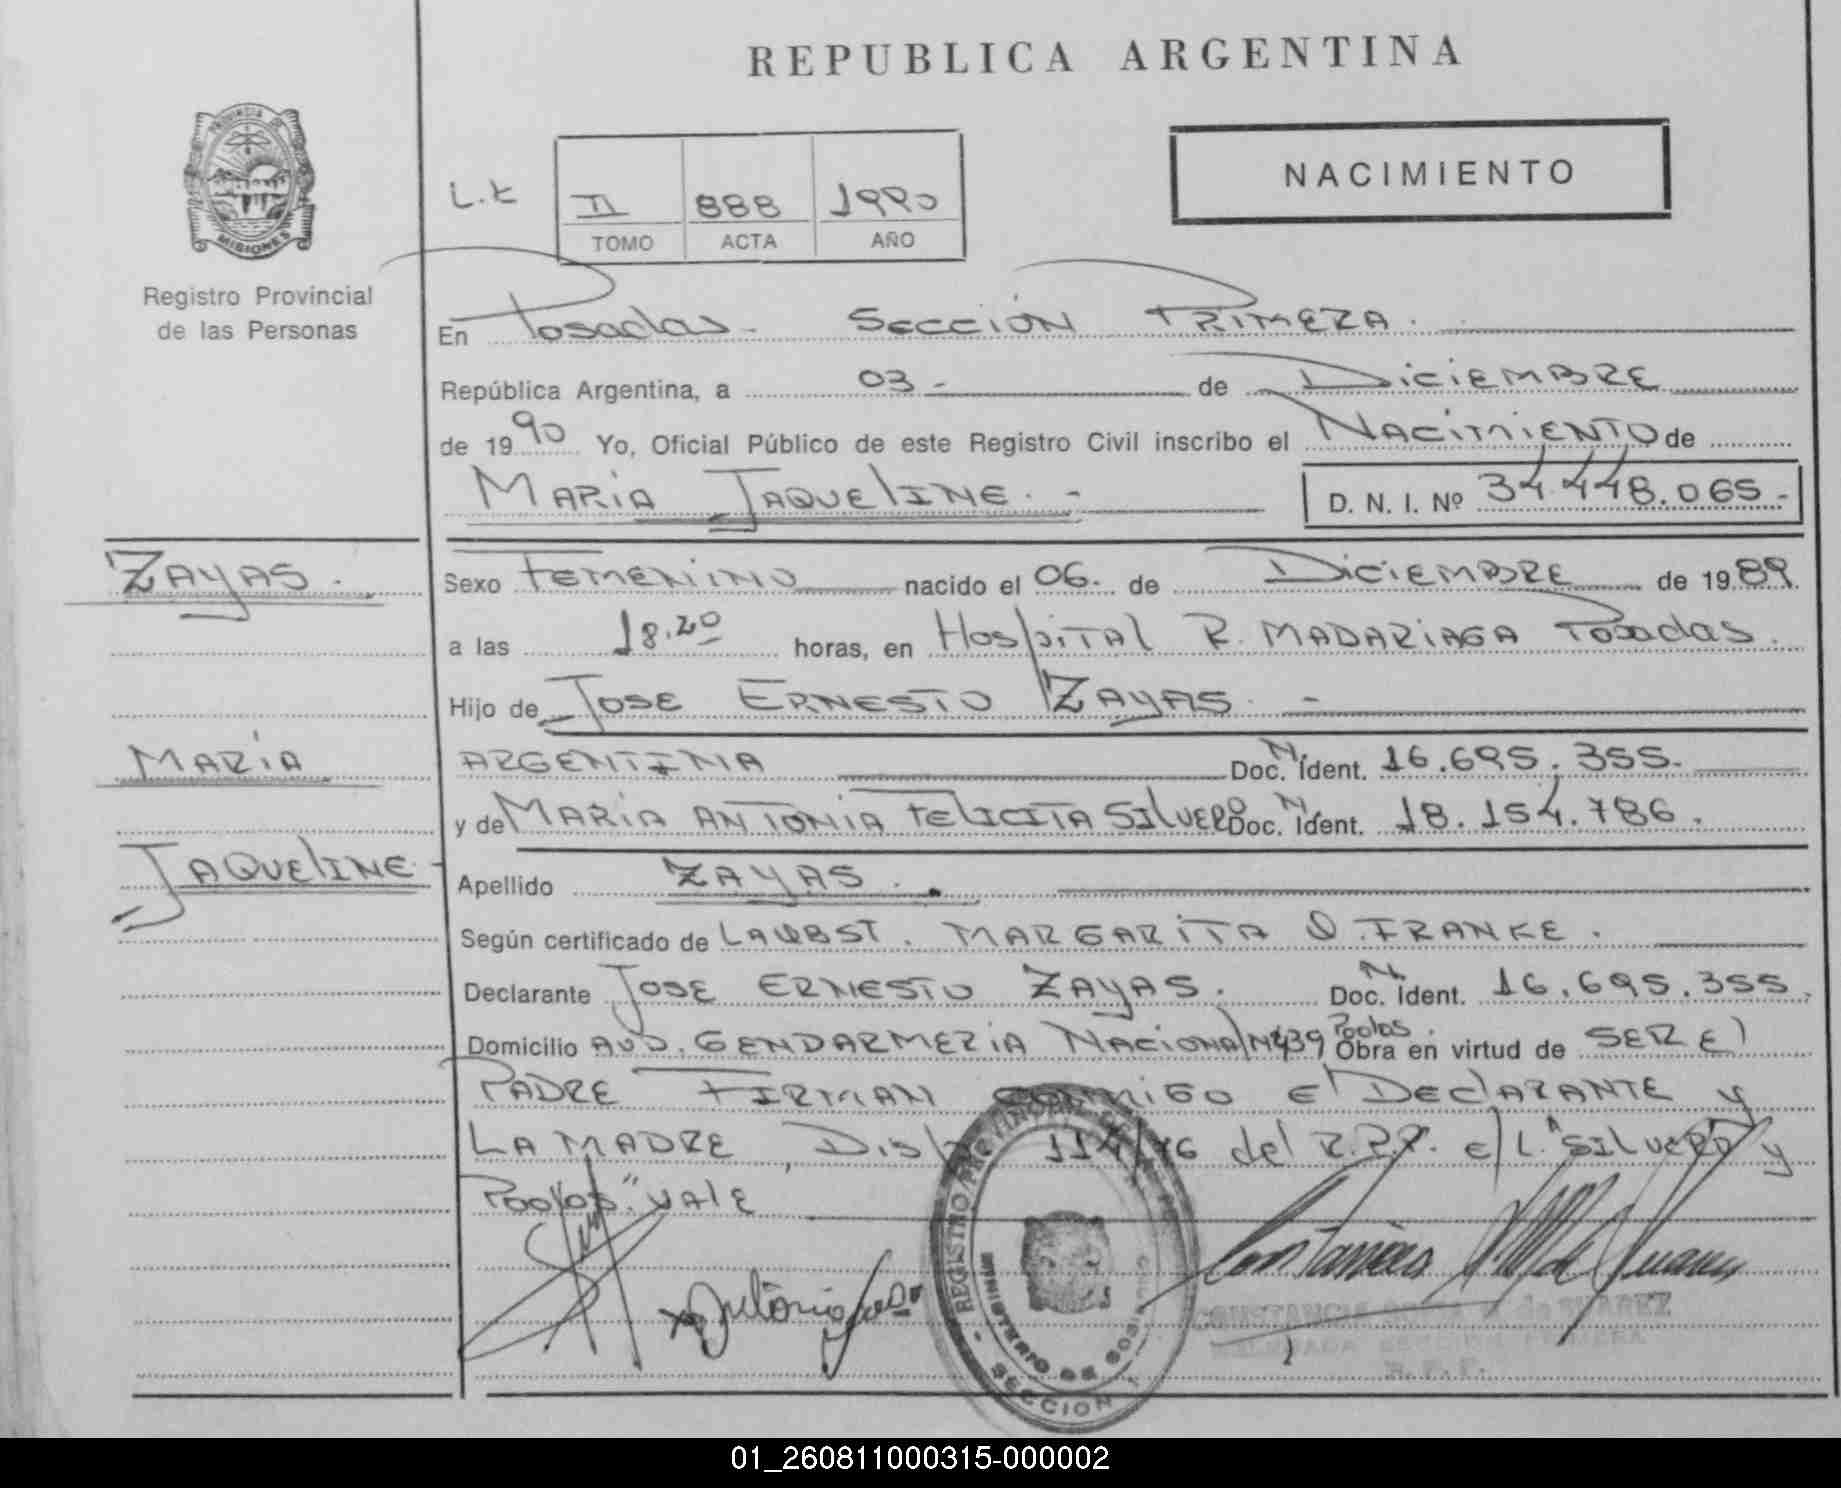 REPUBLICA ARGENTINA
PROVINCIA DE
MISIONES
Registro Provincial
de las Personas
L.K
II 888 1990
TOMO ACTA AÑO
NACIMIENTO
En Posadas. SECCIÓN PRIMERA.
República Argentina, a 03 - de DiCiEMBRE
de 1990 Yo, Oficial Público de este Registro Civil inscribo el NACiMiENTO de
MARIA JAQUELINE. -
D. N. I. Nº 34.448.065.-
ZAYAS.
MARIA
JAQUELINE.
Sexo FEMENINO nacido el 06. de DiCiEMBRE de 1989.
a las 18.20 horas, en HospITAL R. MADARIAGA Posadas.
Hijo de JOSE ERNESTO ZAYAS. -
ARGENTINA Doc. N. Ident. 16.695.355.
y de MARIA ANTONIA FELICITA SILVERO Doc. N. Ident. 18.154.786.
Apellido ZAYAS.
Según certificado de MARGARITA FRANKE.
Declarante JOSE ERNESTO ZAYAS. Doc. N. Ident. 16.695.355.
Domicilio AVD. GENDARMERIA NACIONAL Pdas. Obra en virtud de SER El
PADRE FIRMAN CONMIGO El DEClARANTE y
LA MADRE, Disp. 114/76 del R.P.P. e/L. "SILVERO y
VALE
REGISTRO PROVINCIAL DE LAS
MINISTERIO DE GOBIERNO
SECCION 1
CONSTANCIA de SUAREZ
DELEGADA SECCION PRIMERA
R. P. P.
01_260811000315-000002